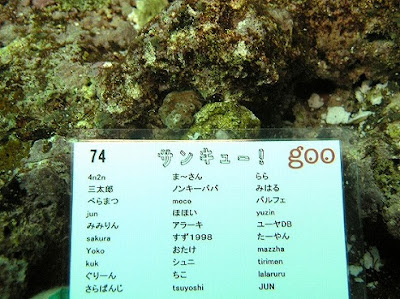 74 サンキュー! goo
4n2n ま～さん らら
三太郎 ノンキーパパ みはる
べらまつ moco パルフェ
jun ほほい yuzin
みみりん アラーキ ユーヤDB
sakura すず1998 たーやん
Yoko おたけ mazzha
kuk シュニ tirimen
ぐりーん ちこ lalaruru
さらぱんじ tsuyoshi JUN